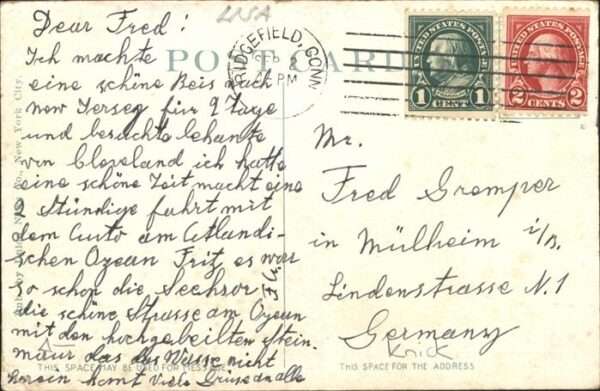 USA
Dear Fred!
Ich machte
eine schöne Reis nach
new Jersey für 2 Tage
und besuchte bekante
von Cleveland ich hatte
eine schöne Zeit macht eine
2 Stündige fahrt mit
dem Auto am Atlandi-
schen Ozean Fritz es war
so schon die
die schöne Strasse am Ozean
mit den hochgebeilten stein
mauer das das Wasser nicht
herein komt Viele Grüsse an alle
POST CARD
RIDGEFIELD, CONN
PM
UNITED STATES POSTAGE
1 CENT 1
UNITED STATES POSTAGE
2 CENTS 2
Mr.
Fred Gremper
in Mülheim
Lindenstrasse N. 1
Germany
New York City.
THIS SPACE MAY BE USED FOR MESSAGE
THIS SPACE FOR THE ADDRESS